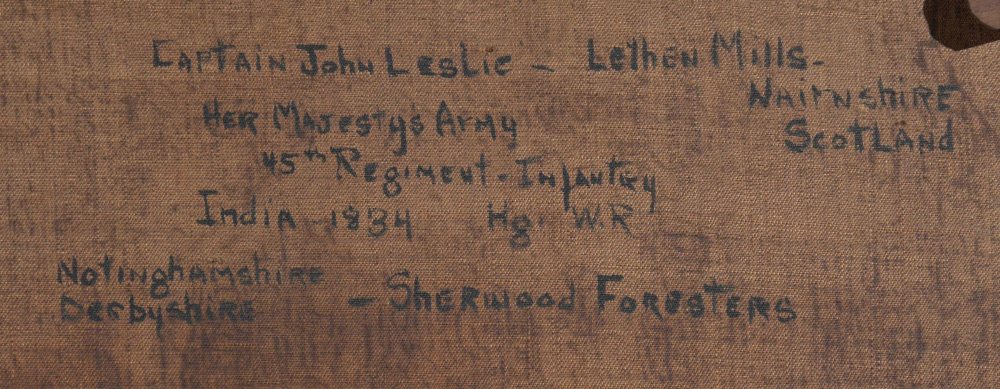 Captain John Leslie - Lethen Mills -
Nairnshire
Scotland
Her Majesty's Army
45th Regiment - Infantry
India - 1834 Hg. W.R
Notinghamshire
Derbyshire - Sherwood Foresters